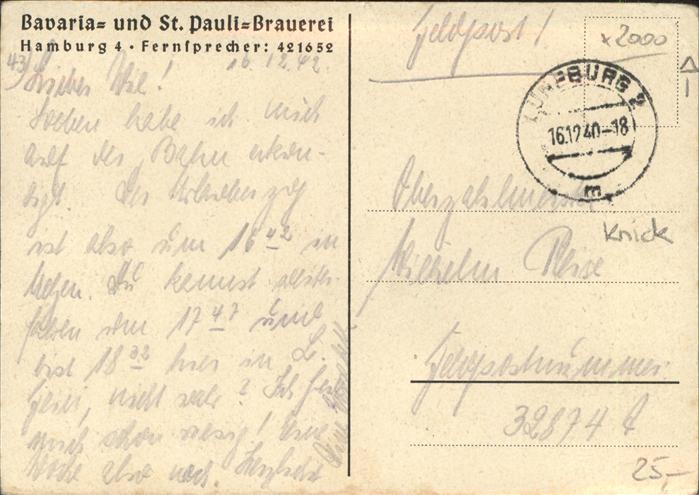 Bavaria= und St. Pauli=Brauerei
Hamburg 4 • Fernsprecher: 421652
16.12.42
Lieber Wil!
Soeben habe ich mich
auf der Bahn erkun-
digt. Der Urlauberzug
ist also um 16 42 in
Du kommst
17 47 und
bist 18 32 hier in L.
nicht wahr? Ich freu
mich schon riesig! Eine
Woche also noch. Herzlichst
Feldpost!
x2000
LÜNEBURG 2
16.12.40-18
m
Oberzahlmeister
Knick
Wilhelm Reise
Feldpostnummer
32874 A
25,-